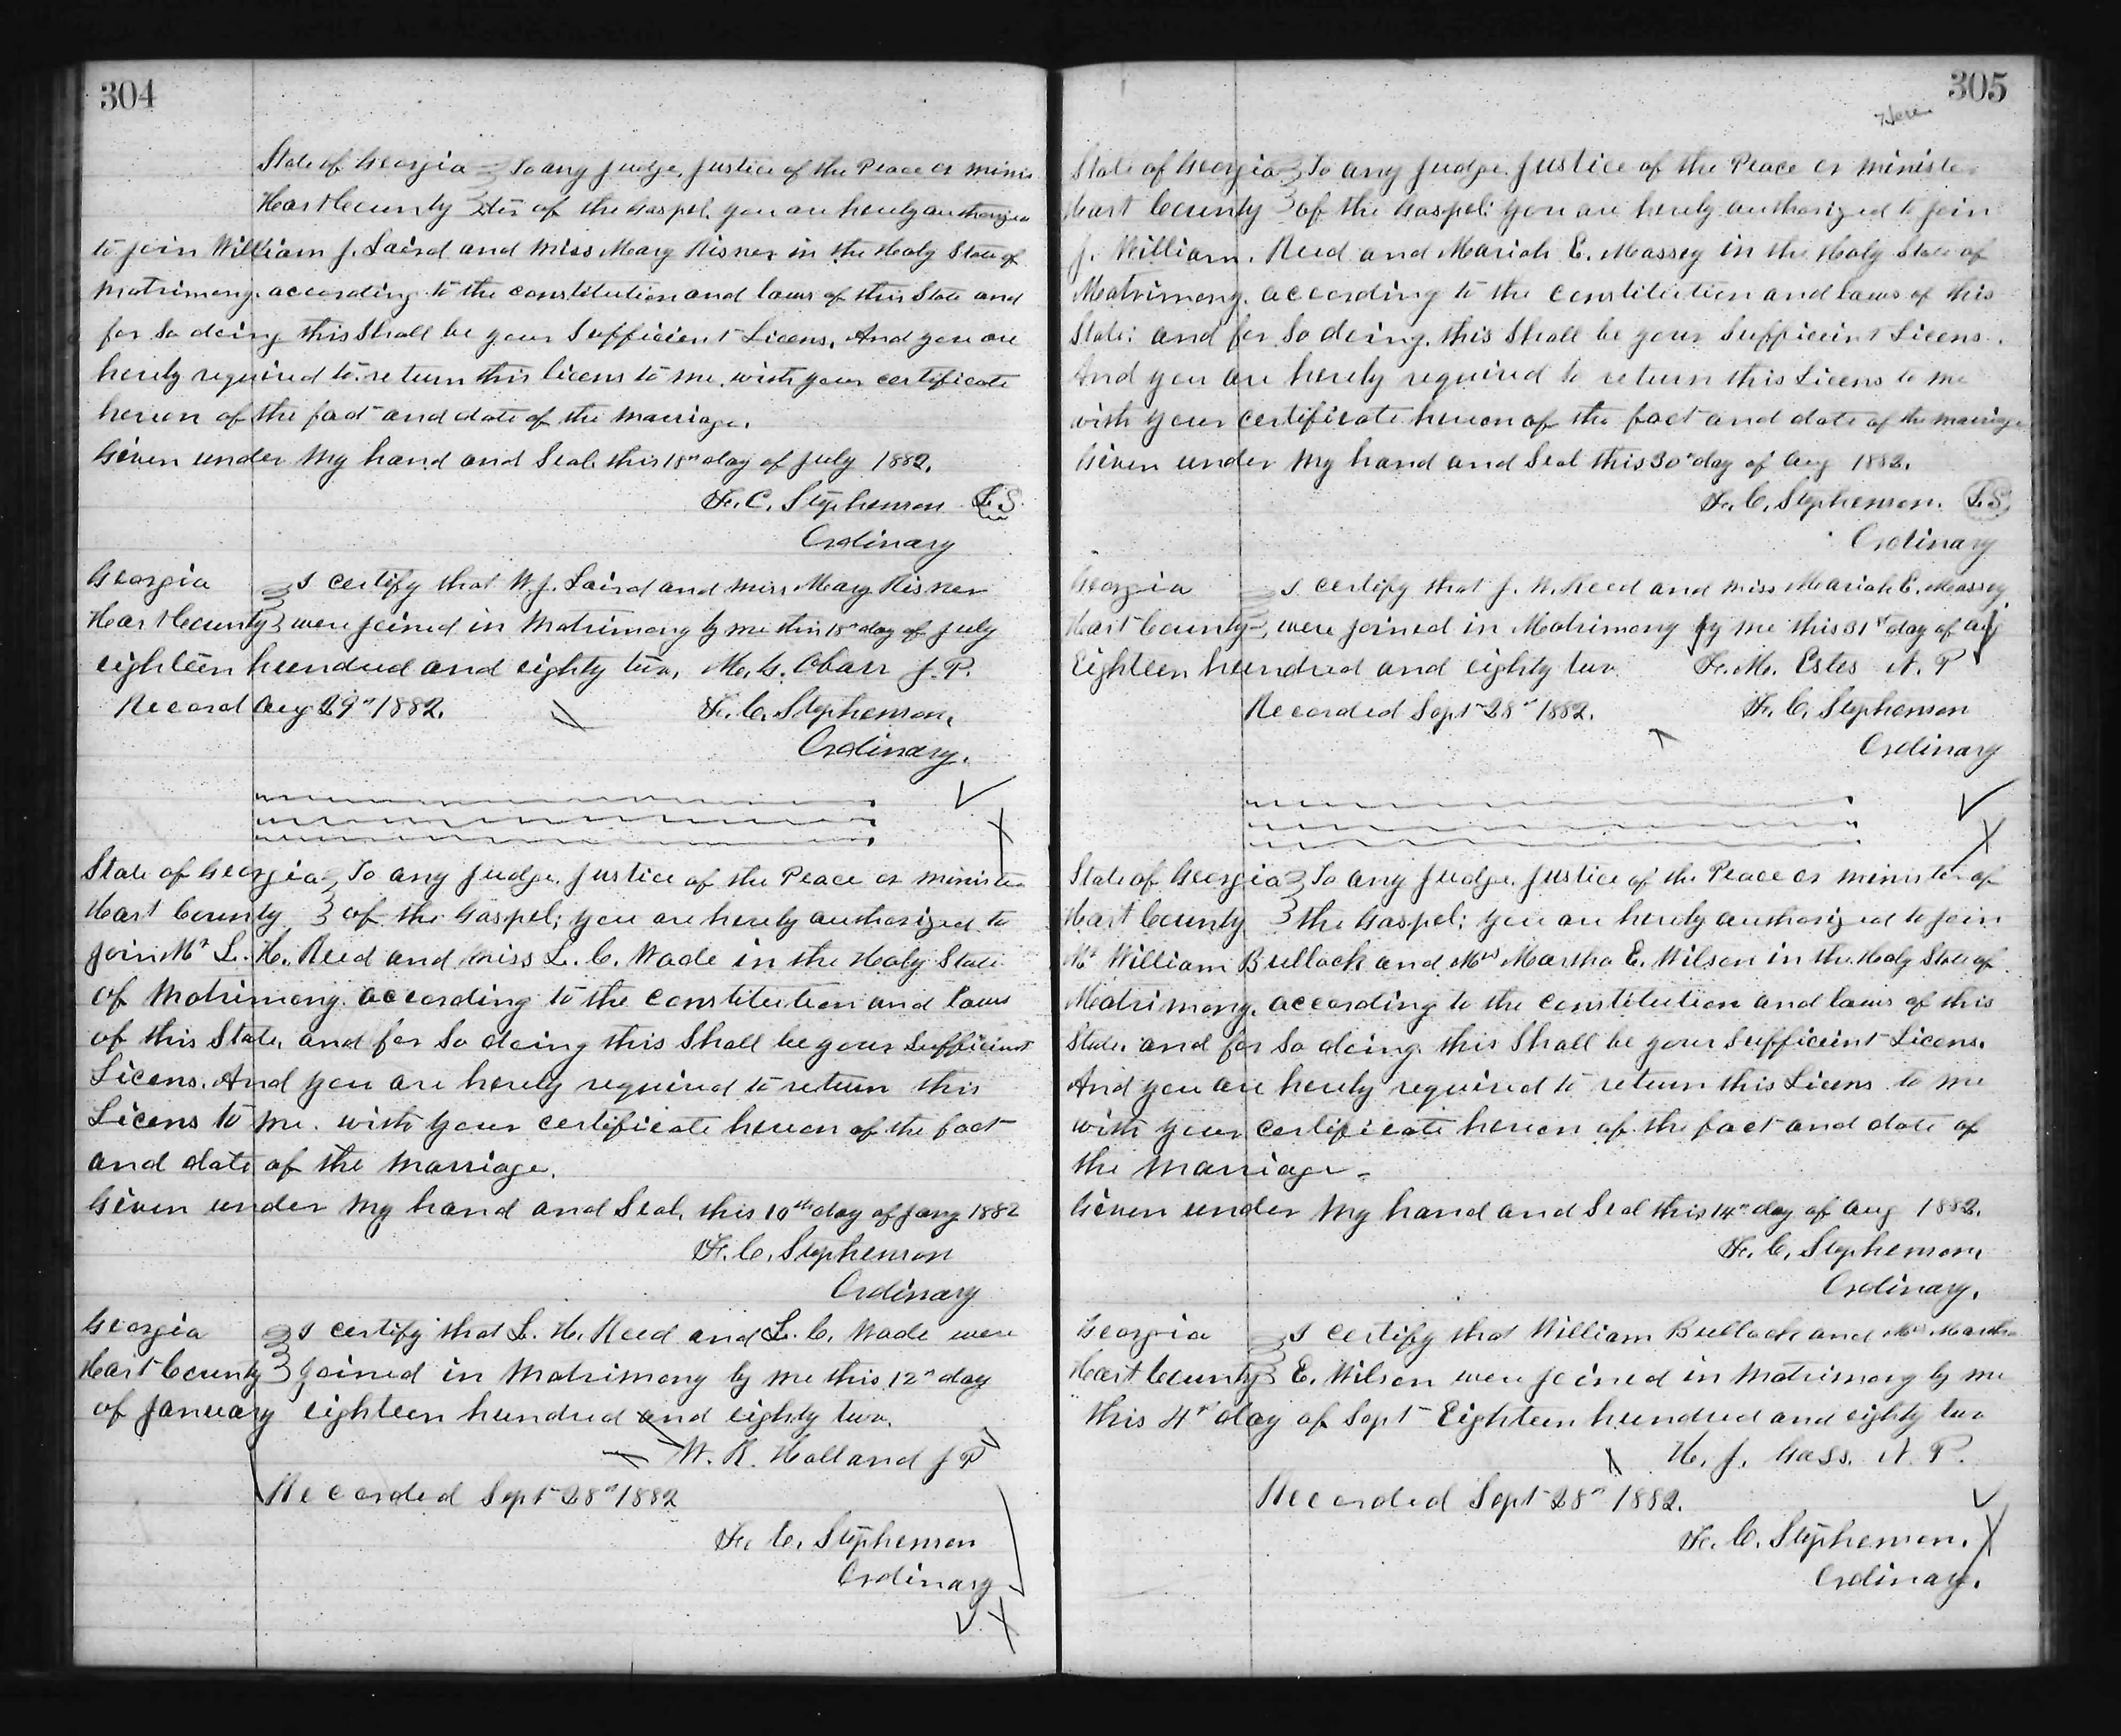 304
State of Georgia To any Judge, Justice of the Peace or minis
Hart County ster of the Gospel, you are hereby authorized
to join William J. Laird and Miss Mary Risner in the Holy State of
Matrimony, according to the constitution and laws of this State and
for So doing this Shall be your Sufficient Licens, And you are
hereby required to return this licens to me, with your certificate
hereon of the fact and date of the marriage.
Given under my hand and Seal this 18th day of July 1882.
F. C. Stephenson L.S.
Ordinary
Georgia I certify that W. J. Laird and miss Mary Risner
Hart County were joined in Matrimony by me this 18th day of July
eighteen hundred and eighty two, M. G. Obarr J. P.
Record Aug 29th 1882. F. C. Stephenson,
Ordinary.
State of Georgia To any Judge, Justice of the Peace or minister
Hart County of the Gospel; you are hereby authorized to
join Mr L. H. Reed and Miss L. C. Wade in the Holy State
of Matrimony, according to the constitution and laws
of this State, and for So doing this Shall be your Sufficient
Licens. And you are hereby required to return this
Licens to me. with your certificate hereon of the fact
and date of the Marriage.
Given under my hand and Seal, this 10th day of Jany 1882
F. C. Stephenson
Ordinary
Georgia I certify that L. H. Reed and L. C. Wade were
Hart County joined in Matrimony by me this 12th day
of January eighteen hundred and eighty two.
W. R. Holland J P
Recorded Sept 28th 1882
F. C. Stephenson
Ordinary
305
Here
State of Georgia To any Judge, Justice of the Peace or minister
Hart County of the Gospel: you are hereby authorized to join
J. William. Reed and Mariah E. Massey in the Holy State of
Matrimony, according to the constitution and laws of this
State: and for So doing, this Shall be your Sufficient Licens.
And you are hereby required to return this Licens to me
with your certificate hereon of the fact and date of the marriage
Given under my hand and Seal this 30th day of Aug 1882.
F. C. Stephenson. L.S.
Ordinary
Georgia I certify that J. W. Reed and miss Mariah E. Massey
Hart County, were joined in Matrimony by me this 31st day of Aug
Eighteen hundred and eighty two F. M. Estes N. P
Recorded Sept 28th 1882. F. C. Stephenson
Ordinary
State of Georgia To any Judge, Justice of the Peace or minister of
Hart County the Gospel: you are hereby authorized to join
Mr William Bullock and Mrs Martha E. Wilson in the Holy State of
Matrimony, according to the constitution and laws of this
State. and for So doing, this Shall be your Sufficient Licens.
And you are hereby required to return this Licens to me
with your certificate hereon of the fact and date of
the marriage
Given under my hand and Seal this 14th day of Aug 1882.
F. C. Stephenson,
Ordinary.
Georgia I certify that William Bullock and Mrs Martha
Hart County E. Wilson were joined in Matrimony by me
this 4th day of Sept Eighteen hundred and eighty two
H. J. Gass. N. P.
Recorded Sept 28th 1882.
F. C. Stephenson.
Ordinary.